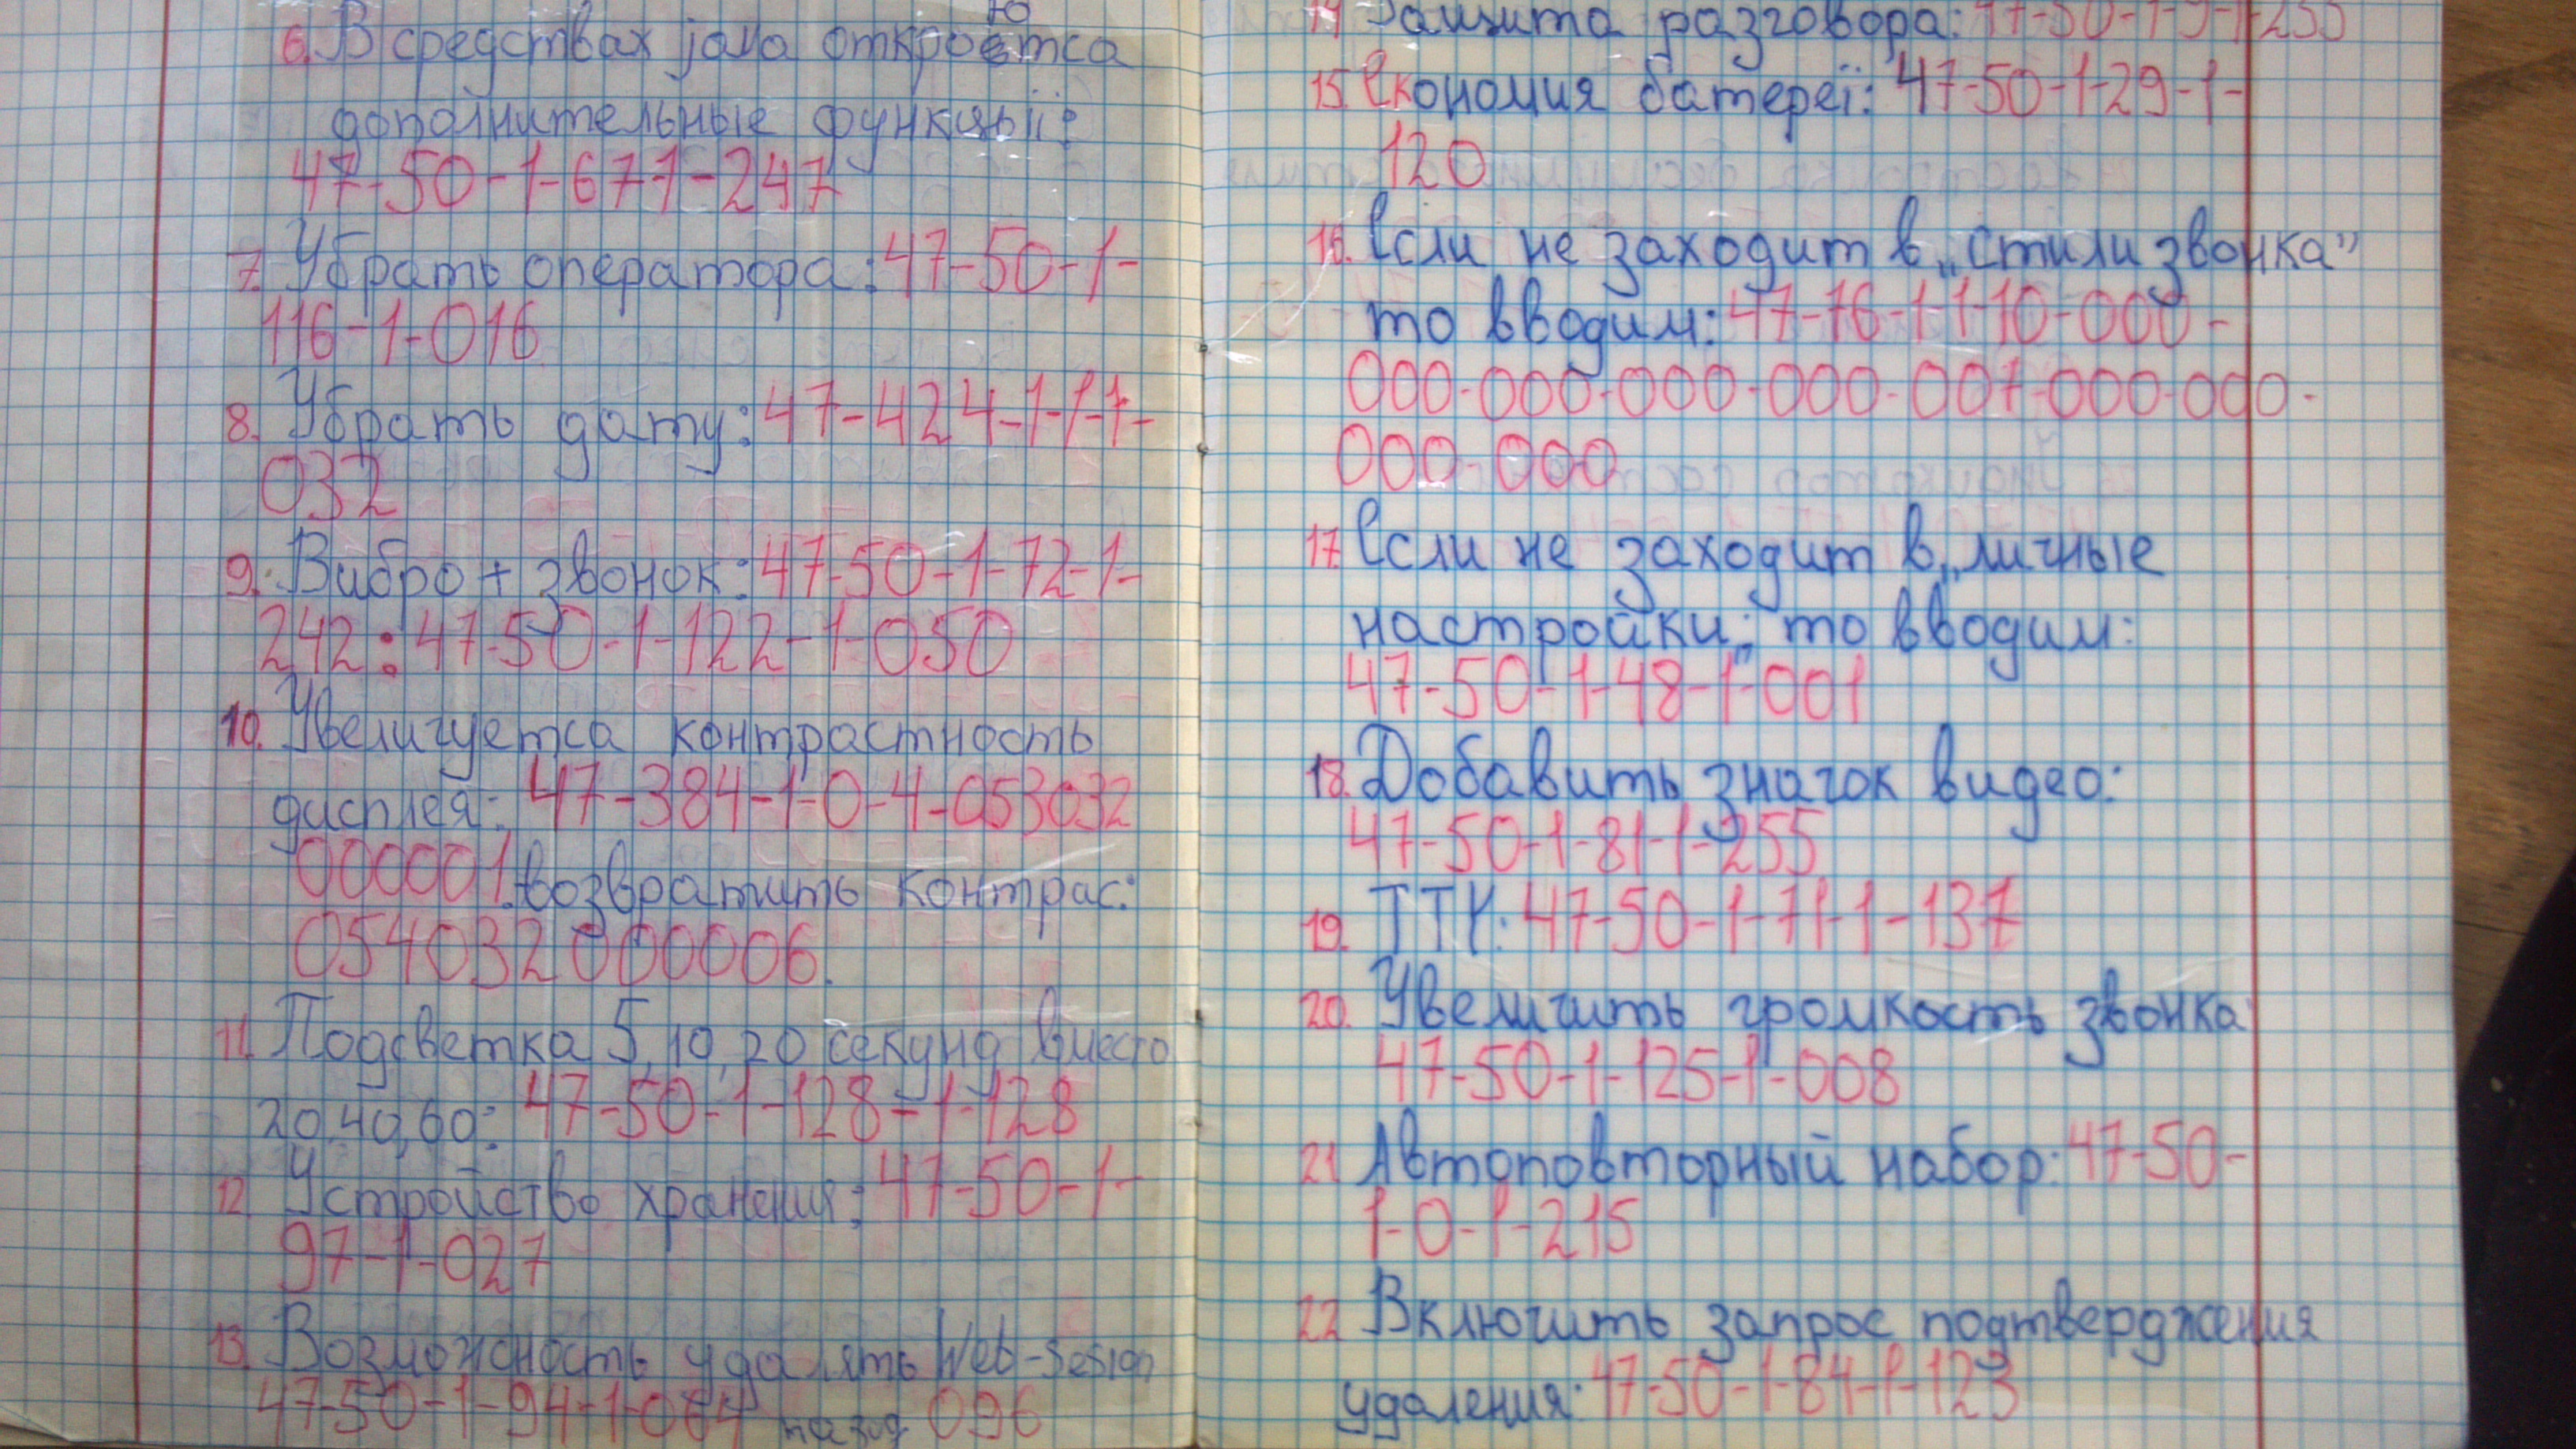 6. В средствах jава откроютса
дополнительные функцыії:
47-50-1-67-1-247
7. Убрать оператора: 47-50-1-
116-1-016
8. Убрать дату: 47-424-1-1-1-
032
9. Вибро + звонок: 47-50-1-72-1-
242: 47-50-1-122-1-050
10. Увеличуетса контрастность
дисплея: 47-384-1-0-4-053032
000001. возвратить контрас:
054032000006.
11. Подсветка 5,10,20 секунд вместо
20,40,60: 47-50-1-128-1-128
12. Устройство хранения: 47-50-1-
97-1-027
13. Возможность удалять Web-Sesion
47-50-1-94-1-064 назад 096
14 Защита разговора: 47-50-1-9-1-255
15. Економия батереї: 47-50-1-29-1-
120
16. Если не заходит в „стили звонка”
то вводим: 47-76-1-1-10-000-
000-000-000-000-007-000-000-
000-000
17. Если не заходит в „личные
настройки„ то вводим:
47-50-1-48-1-001
18. Добавить значок видео:
47-50-1-81-1-255
19. ТТУ: 47-50-1-71-1-137
20. Увеличить громкость звонка
47-50-1-125-1-008
21 Автоповторный набор: 47-50-
1-0-1-215
22 Включить запрос подтверджения
удаления: 47-50-1-84-1-123